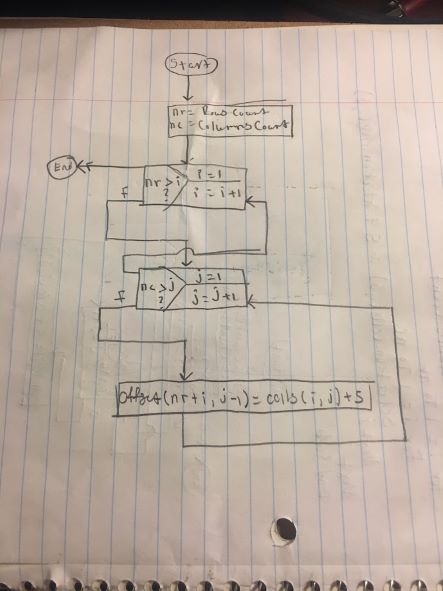 Start
nr = Rows Count
nc = Columns Count
End
nr > i
?
i = 1
i = i+1
F
nc > j
?
j = 1
j = j+1
F
Offset(nr+i, j-1) = cells(i, j)+5